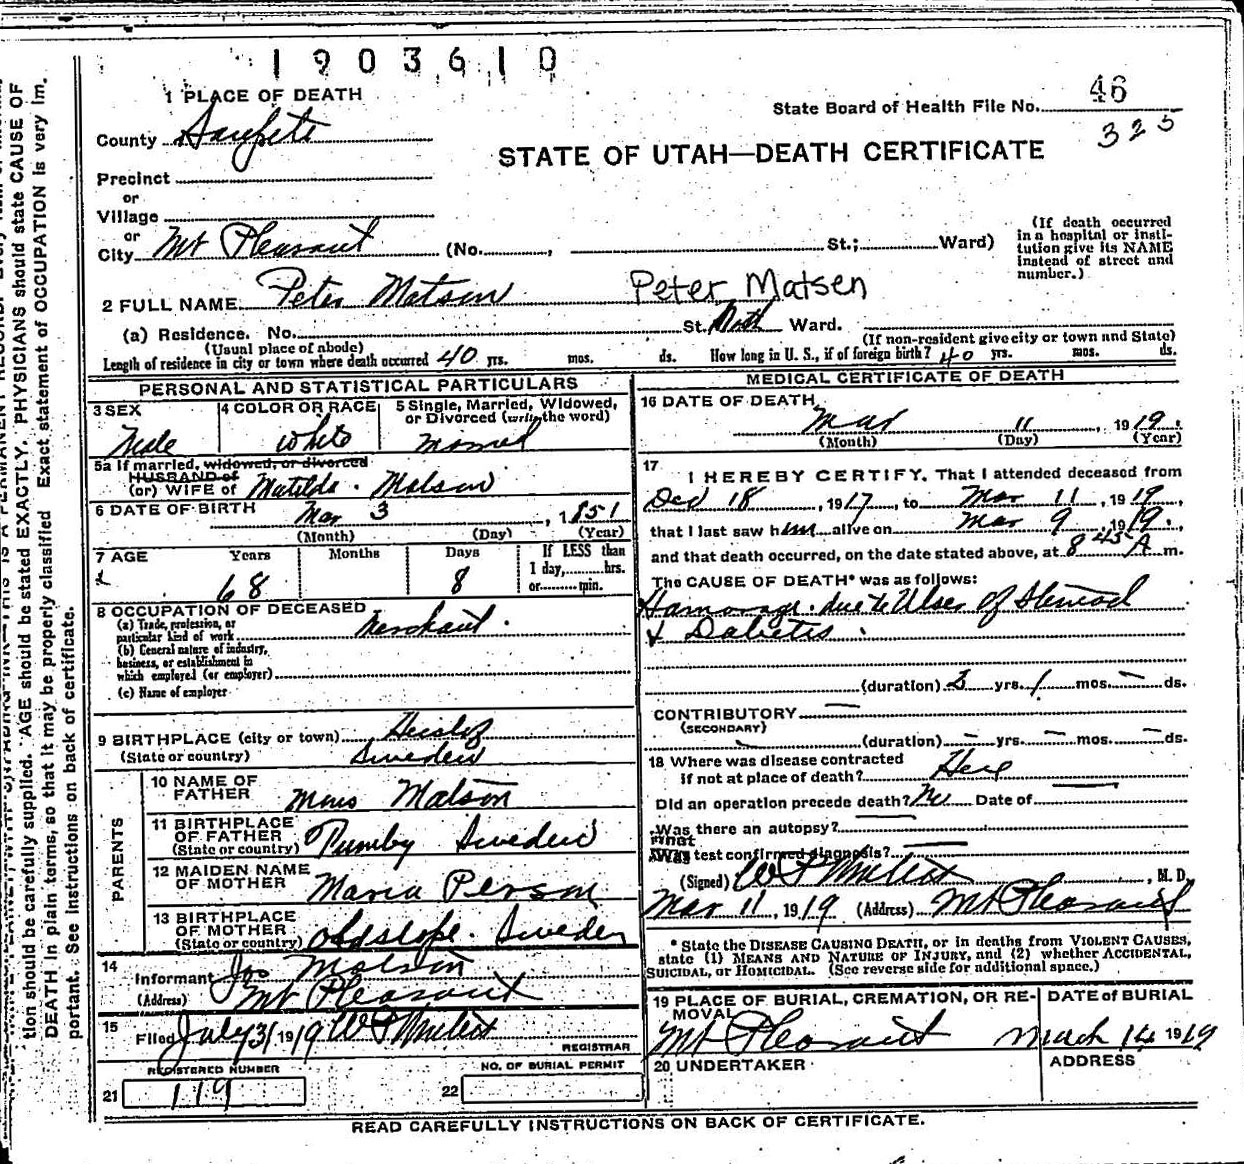 1903610
1 PLACE OF DEATH
State Board of Health File No. 46
325
County Sanpete
STATE OF UTAH—DEATH CERTIFICATE
Precinct
or
Village
or
City Mt Pleasant (No. , St.; Ward)
(If death occurred in a hospital or insti-
tution give its NAME
instead of street and
number.)
2 FULL NAME Peter Matson Peter Matsen
(a) Residence. No. St. Ward.
(Usual place of abode) (If non-resident give city or town and State)
Length of residence in city or town where death occurred 40 yrs. mos. ds. How long in U. S., if of foreign birth? 40 yrs. mos. ds.
PERSONAL AND STATISTICAL PARTICULARS
3 SEX 4 COLOR OR RACE 5 Single, Married, Widowed,
or Divorced (write the word)
Male white
5a If married, widowed, or divorced
HUSBAND of
(or) WIFE of Matilda Matson
6 DATE OF BIRTH Mar 3, 1851
(Month) (Day) (Year)
7 AGE Years Months Days If LESS than
1 day, hrs.
or min.
68 8
8 OCCUPATION OF DECEASED
(a) Trade, profession, or
particular kind of work Merchant.
(b) General nature of industry,
business, or establishment in
which employed (or employer)
(c) Name of employer
9 BIRTHPLACE (city or town)
(State or country) Sweden
PARENTS
10 NAME OF
FATHER Mons Matson
11 BIRTHPLACE
OF FATHER
(State or country) Sweden
12 MAIDEN NAME
OF MOTHER Maria Person
13 BIRTHPLACE
OF MOTHER
(State or country) Sweden
14
Informant Jos Matson
(Address) Mt Pleasant
15
Filed July 31 1919
REGISTRAR
REGISTERED NUMBER NO. OF BURIAL PERMIT
21 119 22
MEDICAL CERTIFICATE OF DEATH
16 DATE OF DEATH
Mar 11, 1919.
(Month) (Day) (Year)
17
I HEREBY CERTIFY, That I attended deceased from
Dec 18, 1917, to Mar 11, 1919,
that I last saw him alive on Mar 9, 1919.,
and that death occurred, on the date stated above, at 8 45 A m.
The CAUSE OF DEATH* was as follows:
Hamorage due to Ulser of Stomach
& Dabetis.
(duration) yrs. 1 mos. – ds.
CONTRIBUTORY —
(SECONDARY)
(duration) – yrs. – mos. – ds.
18 Where was disease contracted
if not at place of death? Here
Did an operation precede death? No Date of
Was there an autopsy?
What
Was test confirmed diagnosis?
(Signed) , M. D.
Mar 11, 1919 (Address) Mt Pleasant
* State the DISEASE CAUSING DEATH, or in deaths from VIOLENT CAUSES,
state (1) MEANS AND NATURE OF INJURY, and (2) whether ACCIDENTAL,
SUICIDAL, or HOMICIDAL. (See reverse side for additional space.)
19 PLACE OF BURIAL, CREMATION, OR RE-
MOVAL
DATE of BURIAL
Mt Pleasant March 14 1919
20 UNDERTAKER ADDRESS
READ CAREFULLY INSTRUCTIONS ON BACK OF CERTIFICATE.
tion should be carefully supplied. AGE should be stated EXACTLY. PHYSICIANS should state CAUSE OF
DEATH in plain terms, so that it may be properly classified. Exact statement of OCCUPATION is very im-
portant. See instructions on back of certificate.